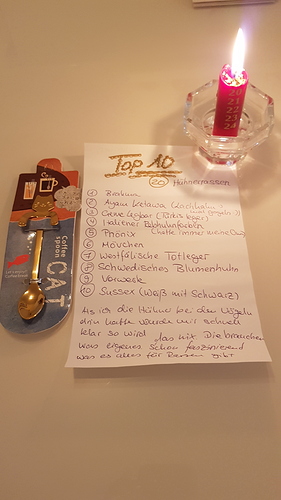 20
21
22
23
24
Top 10
20 Hühnerrassen
1 Brahma
2 Ayam Ketawa (Lachhahn)
3 Creve
4 Italiener
5 Phönix (hatte immer meine Oma)
6 Mövchen
7 Westfälische Totleger
8 Schwedisches Blumenhuhn
9 Vorwerk
10 Sussex (Weiß mit Schwarz)
Als ich die Hühner bei den Vögeln
drin hatte wurde mir schnell
klar so wird das nix. Die brauchen
was eigenes. Schon faszinierend
was es alles für Rassen gibt
Coffee
spoon
CAT